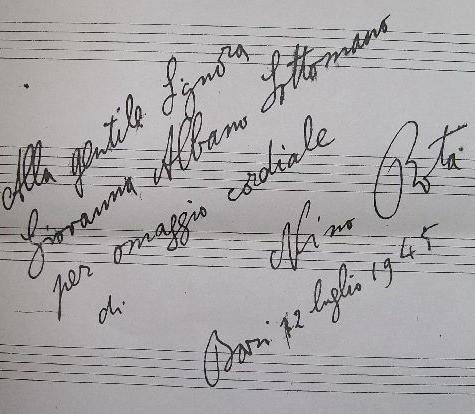 Alla gentile Signora
Giovanna Albano Sottomano
per omaggio cordiale
di Nino Rota
Bari 12 luglio 1945